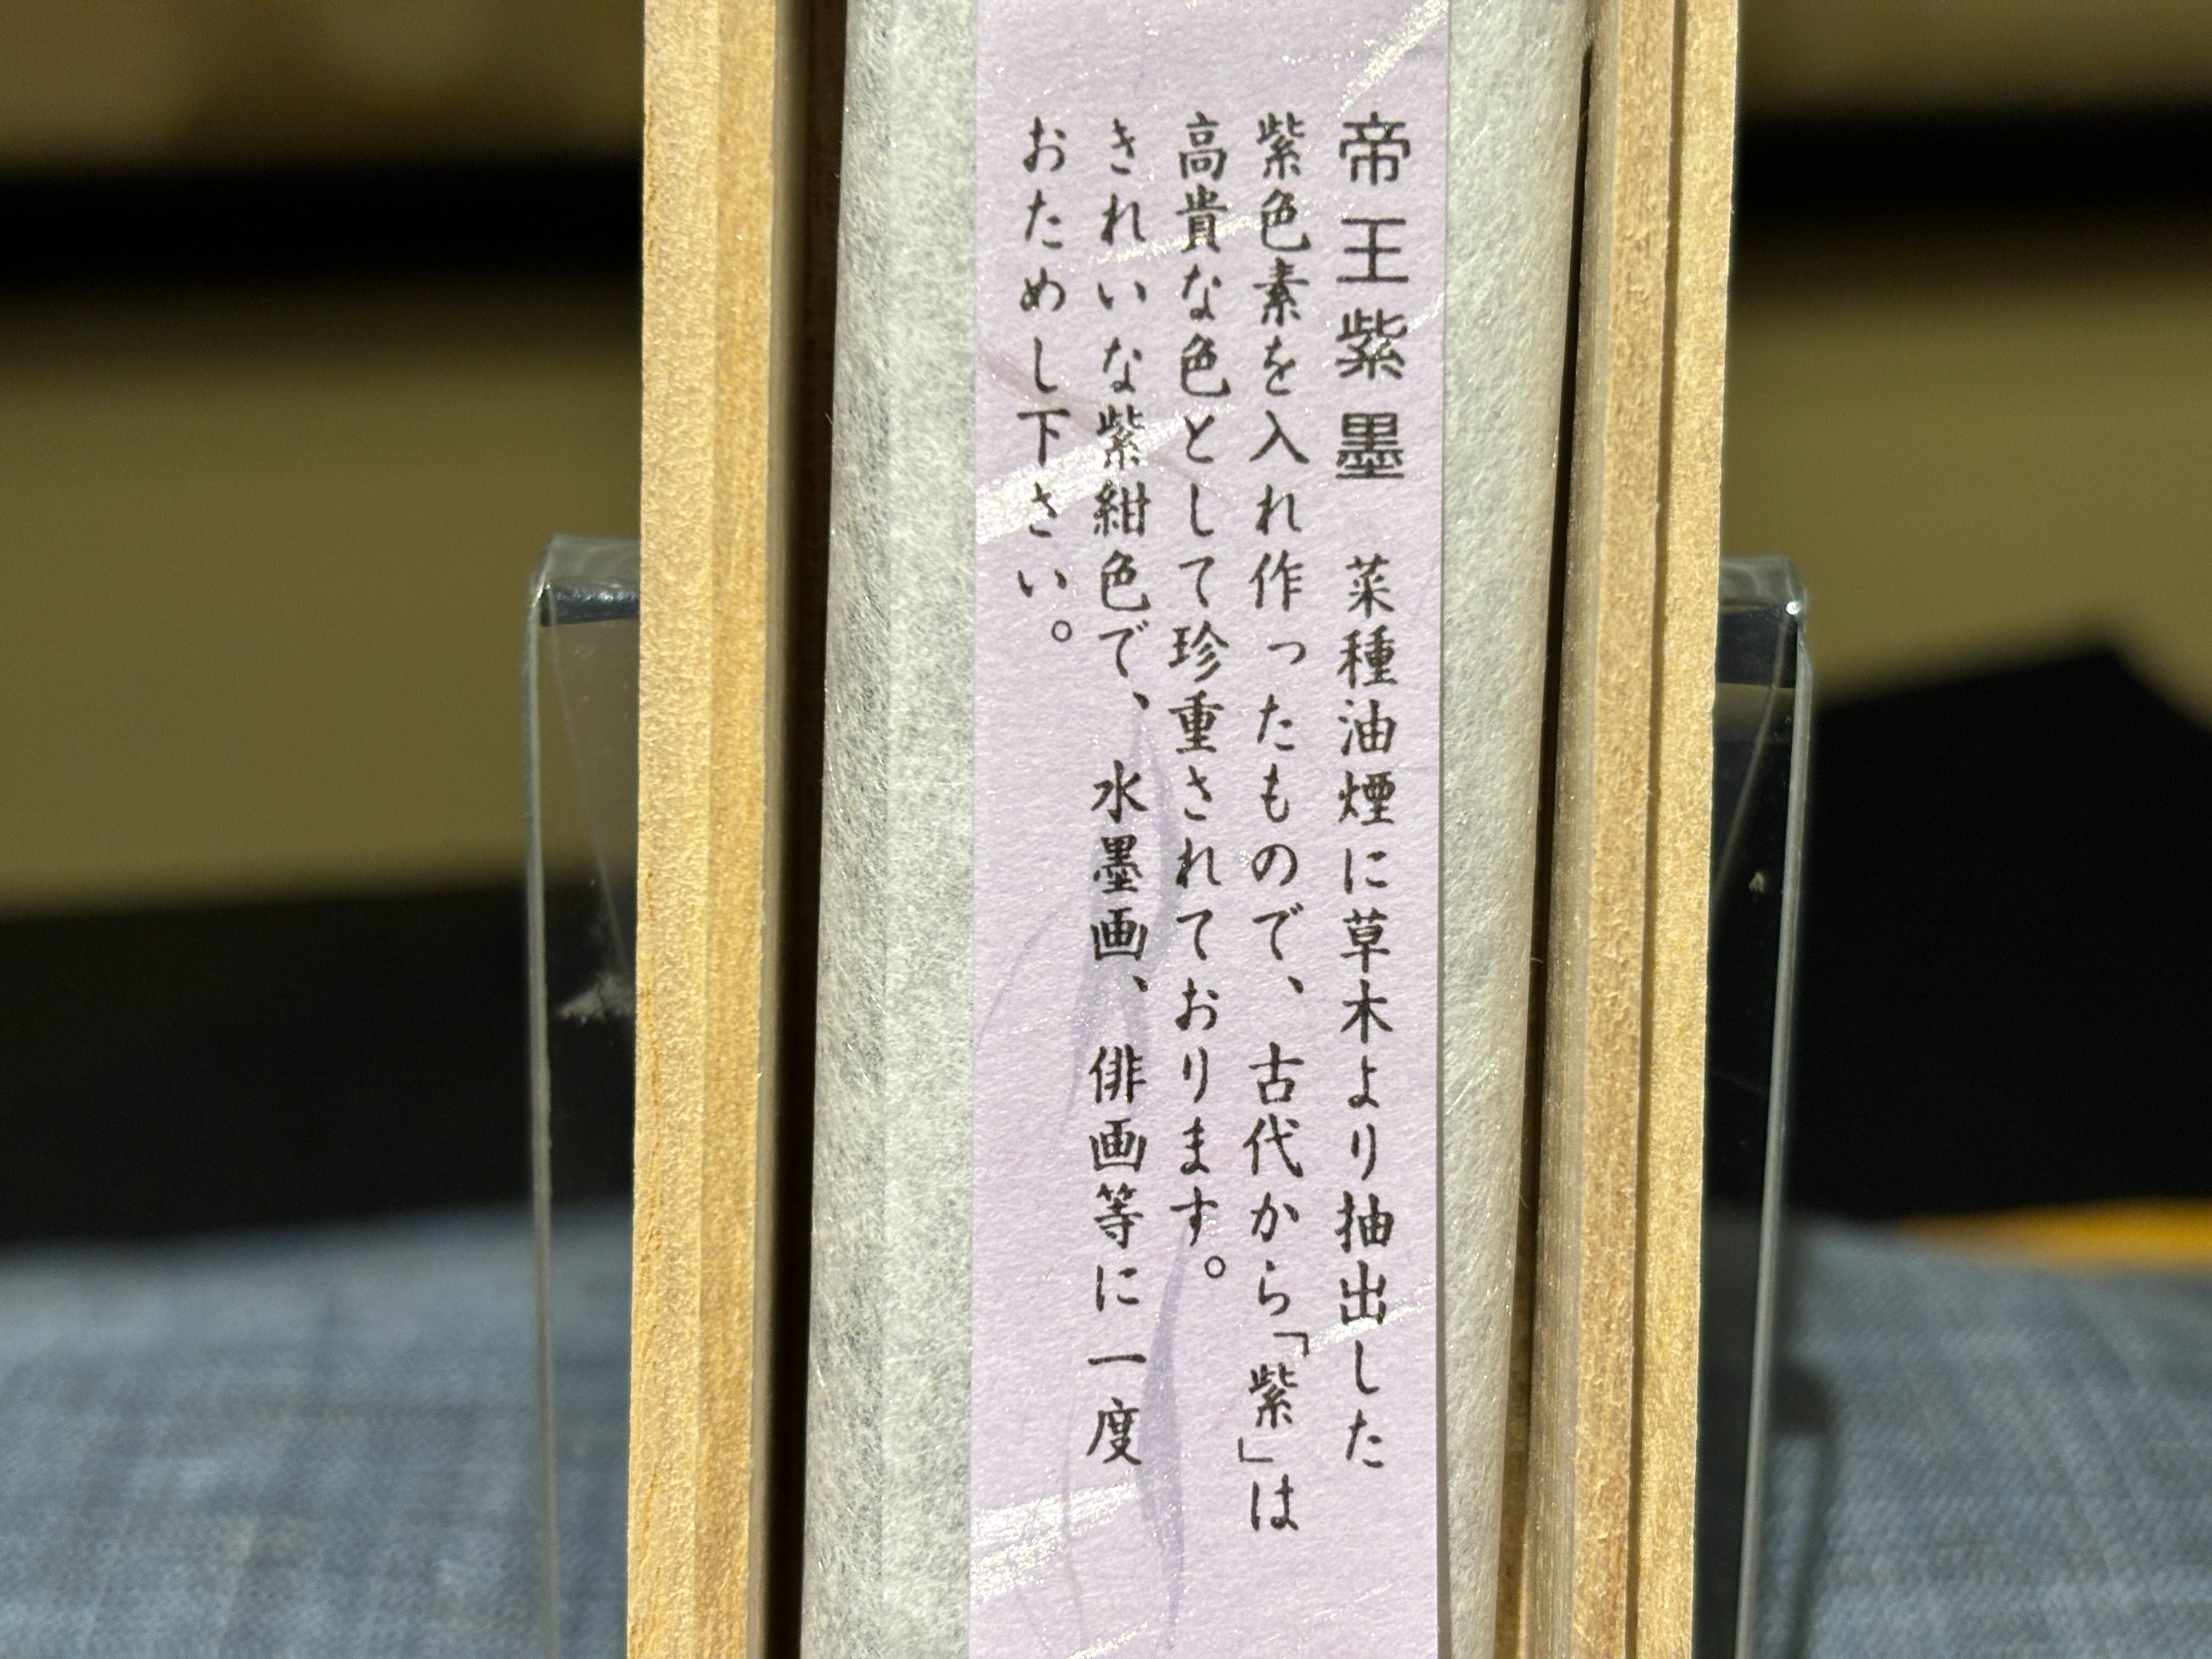 帝王紫墨 菜種油煙に草木より抽出した
紫色素を入れ作ったもので、古代から「紫」は
高貴な色として珍重されております。
きれいな紫紺色で、水墨画、俳画等に一度
おためし下さい。